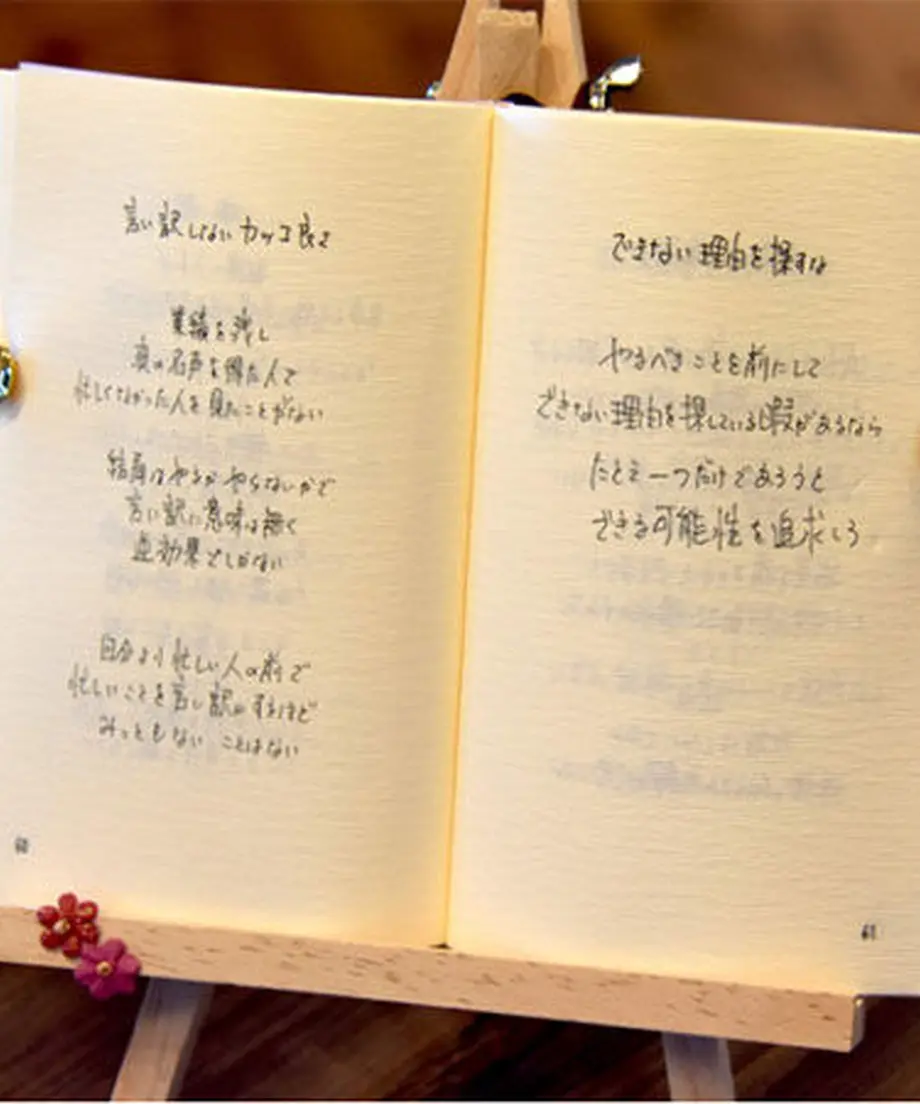 言い訳しないカッコ良さ
業績を残し
真の名声を得た人で
忙しくなかった人を見たことがない
結局はやるかやらないかで
言い訳に意味は無く
逆効果でしかない
自分より忙しい人の前で
忙しいことを言い訳にするほど
みっともないことはない
60
できない理由を探すな
やるべきことを前にして
できない理由を探している暇があるなら
たとえ一つだけであろうと
できる可能性を追求しろ
61